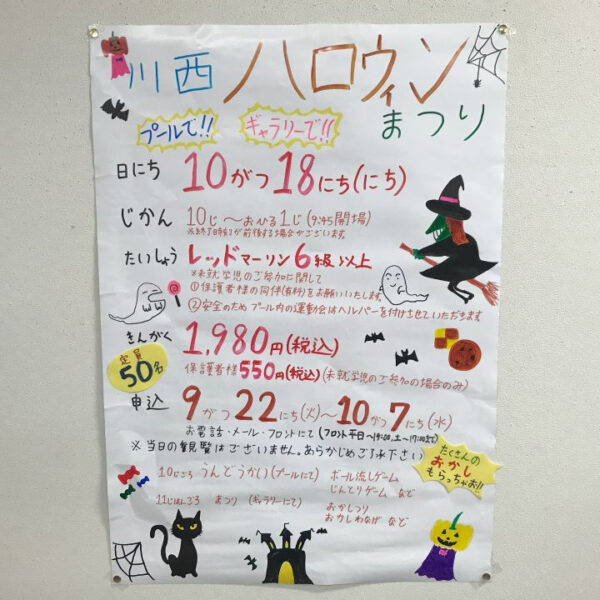 川西 ハロウィン
まつり
プールで!! ギャラリーで!!
日にち 10がつ18にち(にち)
じかん 10じ〜おひる1じ(9:45開場)
※終了時刻が前後する場合がございます。
たいしょう レッドマーリン6級以上
※未就学児のご参加に関して
①保護者様の同伴(有料)をお願いいたします。
②安全のためプール内の運動会はヘルパーを付けさせていただきます
きんがく 1,980円(税込)
保護者様550円(税込)(未就学児のご参加の場合のみ)
定員
50名
申込 9がつ22にち(火)〜10がつ7にち(水)
お電話・メール・フロントにて(フロント平日〜19:00、土〜17:00まで)
※当日の観覧はございません。あらかじめご了承下さい
たくさんの
おかし
もらっちゃお!!
10じごろ うんどうかい(プールにて) ボール流しゲーム
じんとりゲーム など
11じはんごろ まつり (ギャラリーにて) おかしつり
おかしわなげ など